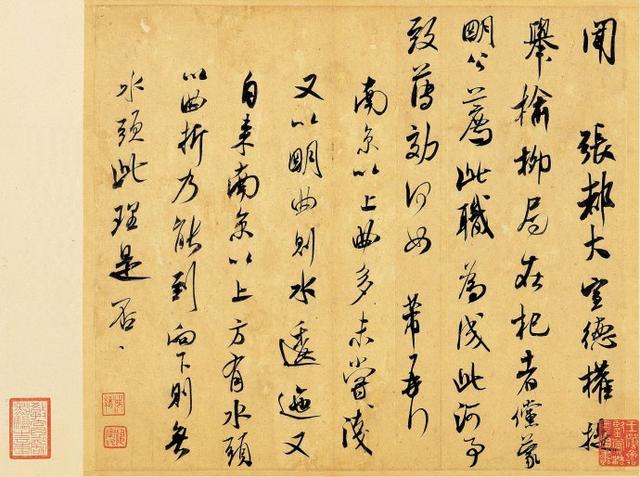 聞 張都大宣德權提
舉榆柳局在杞者儻蒙
明公薦此職為成此河事
致薄効何如 芾再
南京以上曲多未嘗淺
又以明曲則水逶迤又
自来南京以上方有水頭
以曲折乃能到向下則無
水頭此理是否